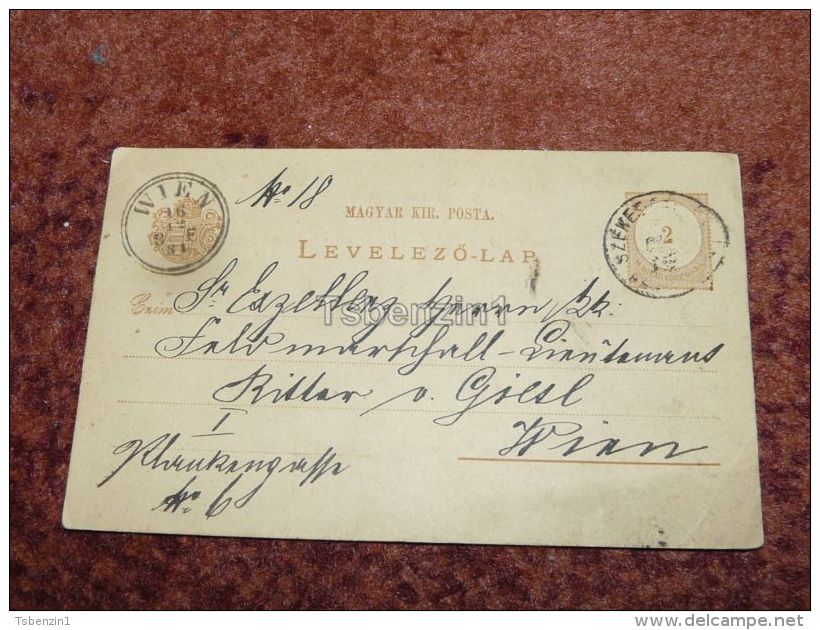 WIEN
16
81
No. 18
MAGYAR KIR. POSTA.
LEVELEZŐ-LAP
SZÉKES
2
MAGYAR KIRÁLYSÁG
Czím
Sr Exzellenz Herrn kk.
Feld marschall-Lieutenant
Ritter v. Giesl
I
Wien
Plankengasse
No 6
Tsbenzin1
Tsbenzin1
delcampe.net